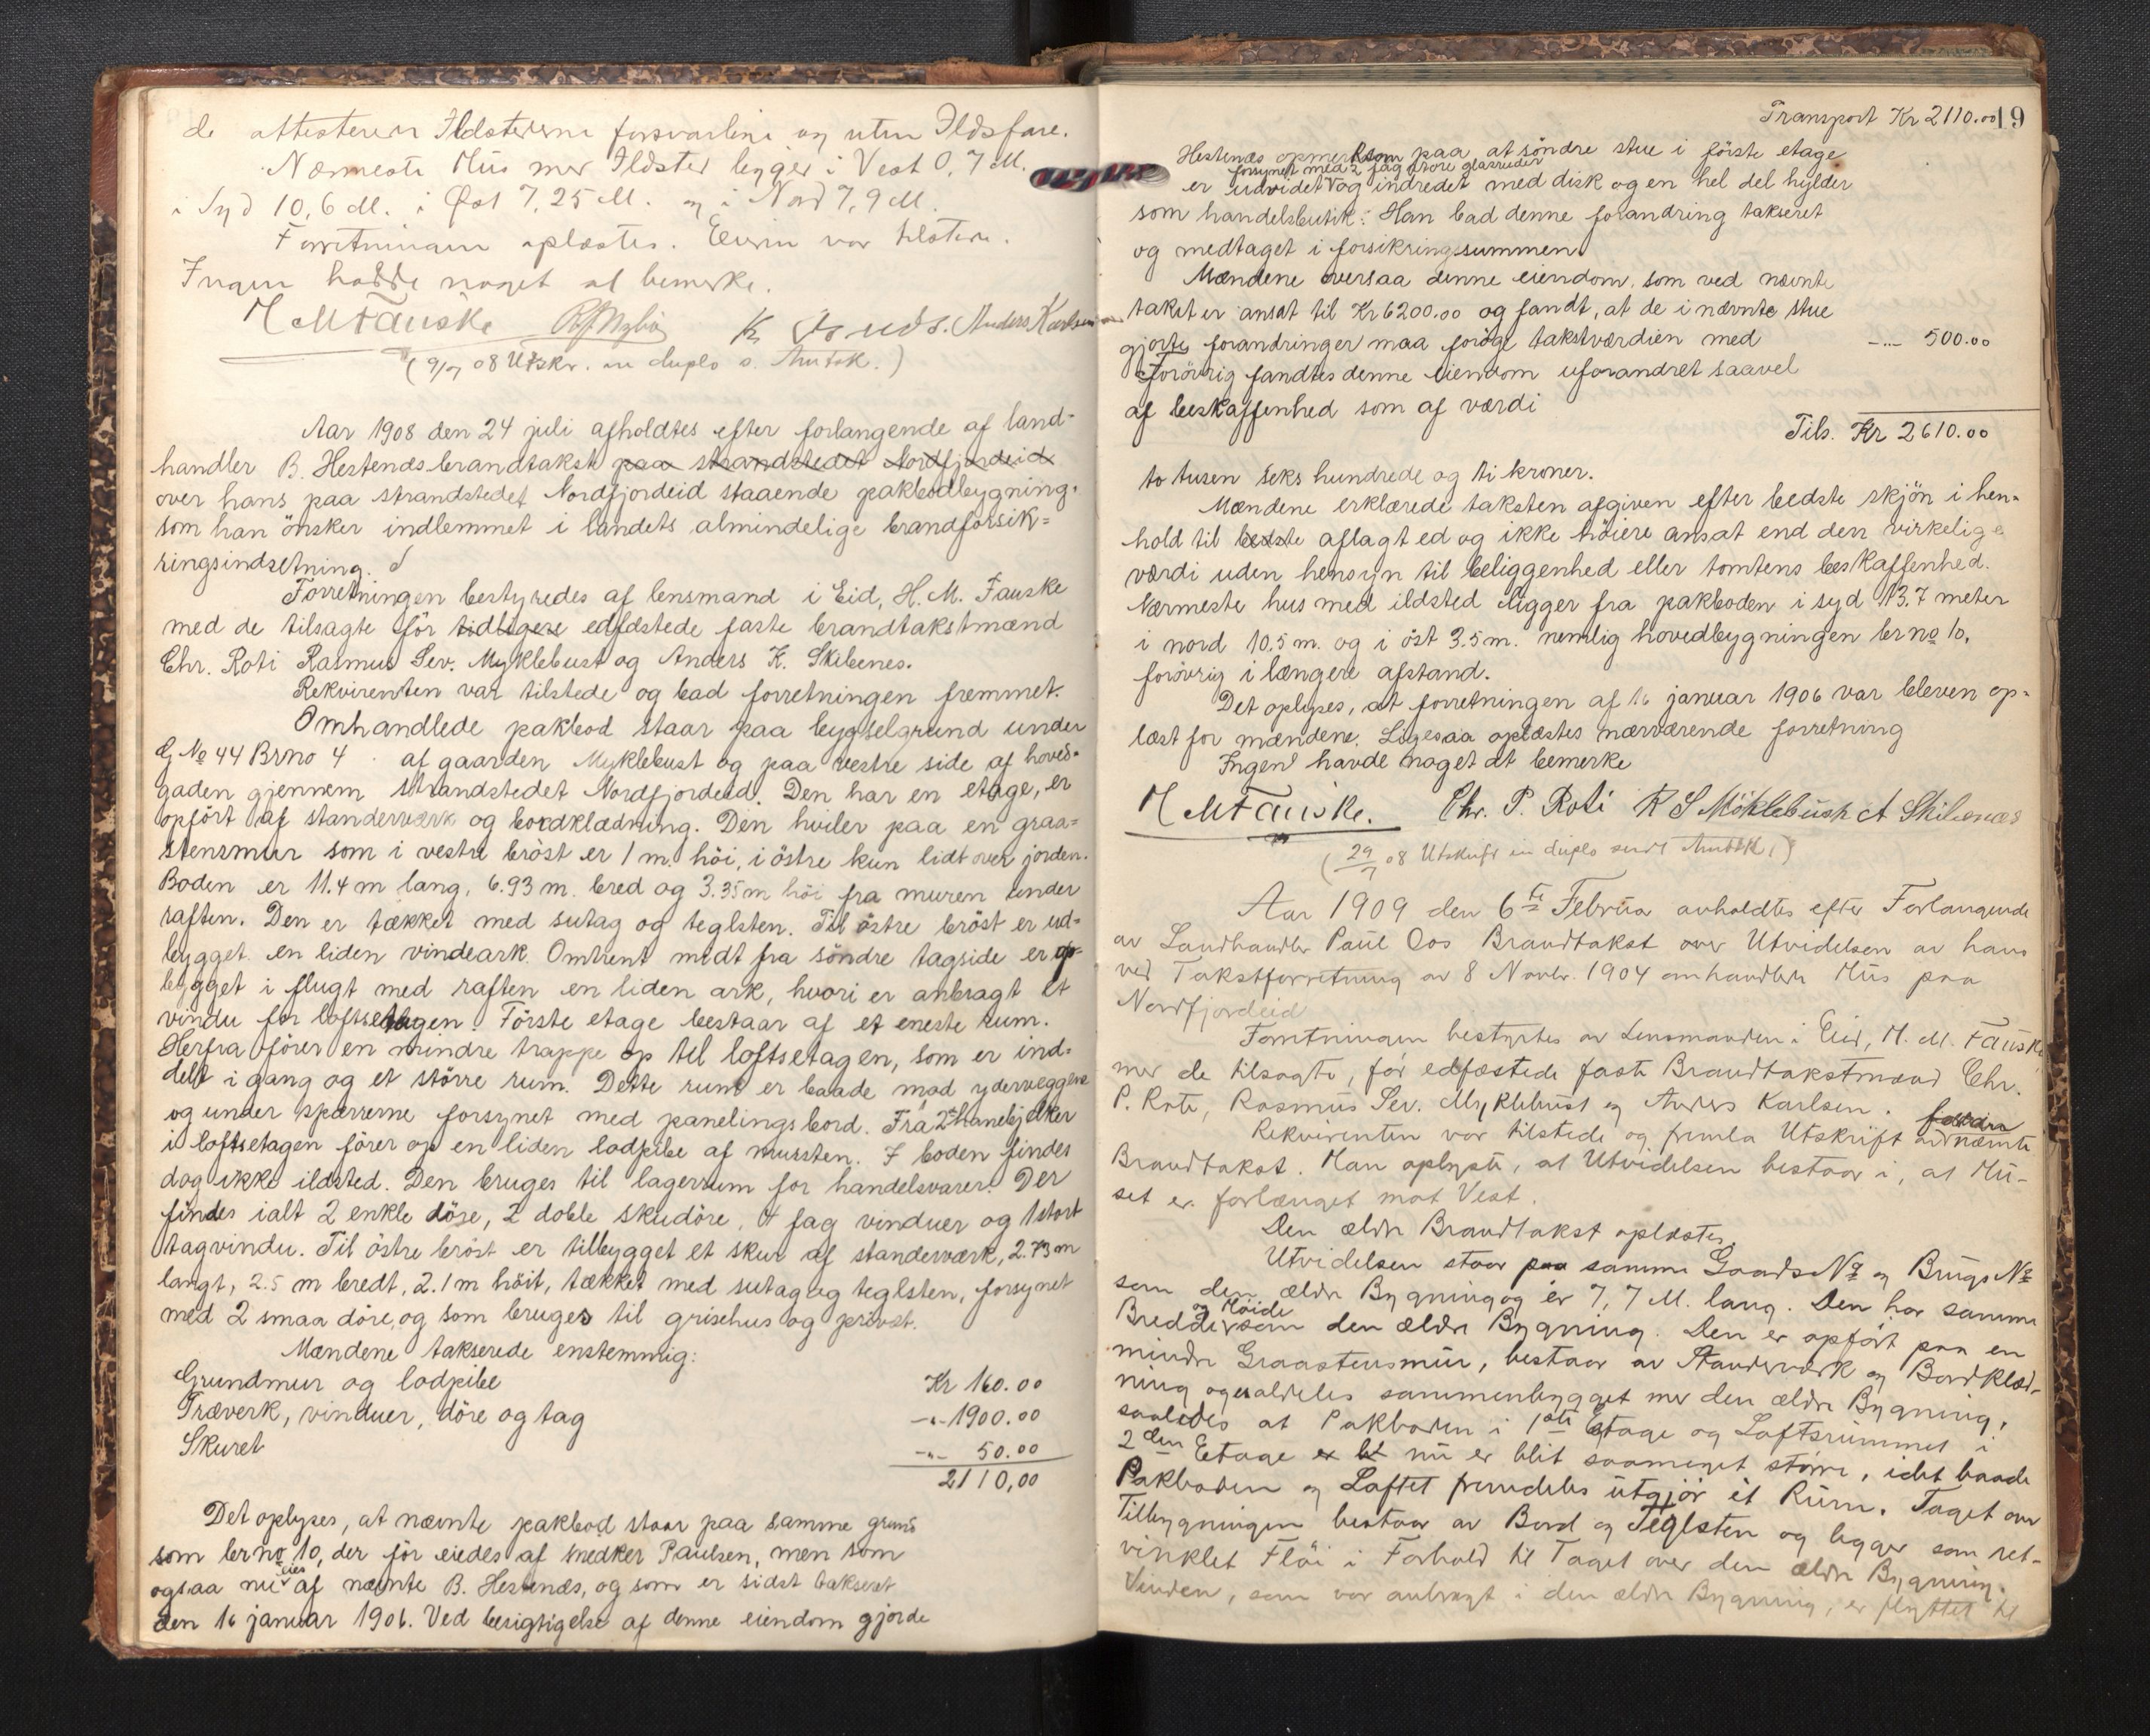 de attesterer Ildstederne forsvarlige og uten Ildsfare.
Nærmeste Hus med Ildsted ligger i Vest 0,7 M.
i Syd 10,6 M. i Øst 7,25 M. og i Nord 7,9 M.
Forretningen oplæstes. Eieren var tilstede.
Ingen hadde noget at bemerke.
H M Fauske Anders Karlsen
(9/7 08 Utskr. in duplo s. Amtsk.)
Aar 1908 den 24 juli afholdtes efter forlangende af land-
handler B. Hestenæs brandtakst paa strandstedet Nordfjordeid
over hans paa strandstedet Nordfjordeid staaende pakbodbygning,
som han önsker indlemmet i landets almindelige brandforsik=
ringsindretning.
Forretningen bestyredes af lensmand i Eid, H. M. Fauske
med de tilsagte för tidligere edfæstede faste brandtakstmænd
Chr. Roti Rasmus Sev. Myklebust og Anders K. Skibenes.
Rekvirenten var tilstede og bad forretningen fremmet.
Omhandlede pakbod staar paa bygselgrund under
G No 44 Brno 4 af gaarden Myklebust og paa vestre side af hoved-
gaden gjennem strandstedet Nordfjordeid. Den har en etage, er
opfört af standerværk og bordklædning. Den hviler paa en graa=
stensmur som i vestre bröst er 1 m. höi, i östre kun lidt over jorden.
Boden er 11.4 m lang, 6.93 m. bred og 3.35 m höi fra muren under
raften. Den er tækket med sutag og teglsten. Til östre bröst er ud-
bygget en liden vindeark. Omtrent midt fra söndre tagside er op-
bygget i flugt med raften en liden ark, hvori er anbragt et
vindu for loftsetagen. Förste etage bestaar af et eneste rum.
Herfra förer en mindre trappe op til loftsetagen, som er ind-
delt i gang og et större rum. Dette rum er baade mod ydervæggene
og under spærrerne forsynet med panelingsbord. Fra 2 hanebjelker
i loftsetagen förer op en liden lodpibe af mursten. I boden findes
dog ikke ildsted. Den bruges til lagerrum for handelsvarer. Der
findes ialt 2 enkle döre, 2 doble skudöre, 4 fag vinduer og 1 stort
tagvindu. Til östre bröst er tilbygget et skur af standerværk, 2.73 m
langt, 2.5 m bredt, 2.1 m höit, tækket med sutag og teglsten, forsynet
med 2 smaa döre, og som bruges til grisehus og privet.
Mændene takserede enstemmig:
Grundmur og lodpibe Kr 160.00
Træverk, vinduer, döre og tag -"- 1900.00
Skuret -"- 50.00
2110,00
Det oplyses, at nævnte pakbod staar paa samme grund
som brno 10, der för eiedes af snedker Paulsen, men som
ogsaa nu eies af nævnte B. Hestenæs, og som er sidst takseret
den 16 januar 1906. Ved besigtigelse af denne eiendom gjorde
Transport Kr 2110.00 19
Hestenæs opmerksom paa at söndre stue i förste etage
forsynet med 2 fag store glasruder
er udvidet og indredet med disk og en hel del hylder
som handelsbutik. Han bad denne forandring takseret
og medtaget i forsikringssummen.
Mændene oversaa denne eiendom, som ved nævnte
takst er ansat til Kr 6200.00 og fandt, at de i nævnte stue
gjorte forandringer maa foröge takstværdien med -"- 500.00
Forövrig fandtes denne eiendom uforandret saavel
af beskaffenhed som af værdi
Tils. Kr 2610.00
to tusen seks hundrede og ti kroner.
Mændene erklærede taksten afgiven efter bedste skjön i hen-
hold til bedste aflagt ed og ikke höiere ansat end den virkelige
værdi uden hensyn til beliggenhed eller tomtens beskaffenhed.
Nærmeste hus med ildsted ligger fra pakboden i syd 13.7 meter
i nord 10.5 m. og i öst 3.5 m. nemlig hovedbygningen brno 10,
forövrig i længere afstand.
Det oplyses, at forretningen af 16 januar 1906 var bleven op-
læst for mændene. Ligesaa oplæstes nærværende forretning
Ingen havde noget at bemerke
H M Fauske. Chr. P. Roti R S Möklebust A Skibenæs
(29/7 08 Utskrift in duplo sendt Amtsk.)
Aar 1909 den 6te Februar avholdtes efter Forlangende
av Landhandler Paul Oos Brandtakst over Utvidelsen av hans
ved Takstforretning av 8 Novbr. 1904 omhandlede Hus paa
Nordfjordeid
Forretningen bestyrtes av Lensmanden i Eid, H. M. Fauske
med de tilsagte, før edfæstede faste Brandtakstmænd Chr.
P. Roti, Rasmus Sev. Myklebust og Anders Karlsen.
Rekvirenten var tilstede og fremla Utskrift av nævnte
Brandtakst. Han oplyste, at Utvidelsen bestaar i, at Hu-
set er forlænget mot Vest.
Den ældre Brandtakst oplæstes.
Utvidelsen staar paa samme Gaards No og Brugs No
som den ældre Bygning og er 7,7 M. lang. Den har samme
og Høide
Bredde som den ældre Bygning. Den er opført paa en
mindre Graastensmur, bestaar av Standerværk og Bordklæd-
ning og er aldeles sammenbygget med den ældre Bygning,
saaledes at Pakboden i 1ste Etage og Loftsrummet i
2den Etage nu er blit saameget større, idet baade
Pakboden og Loftet fremdeles utgjør et Rum. Taget over
Tilbygningen bestaar av Bord og Teglsten og ligger som ret-
vinklet Fløi i Forhold til Taget over den ældre Bygning.
Vinden, som var anbragt i den ældre Bygning, er flyttet til